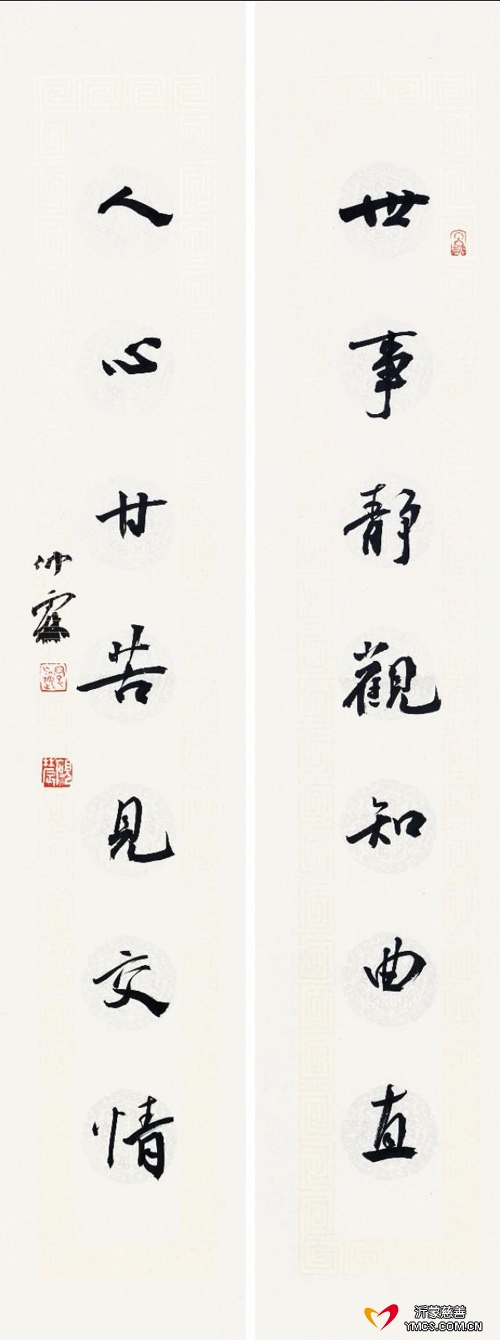 世事靜觀知曲直
人心甘苦見交情
沂蒙慈善
YMCS.COM.CN